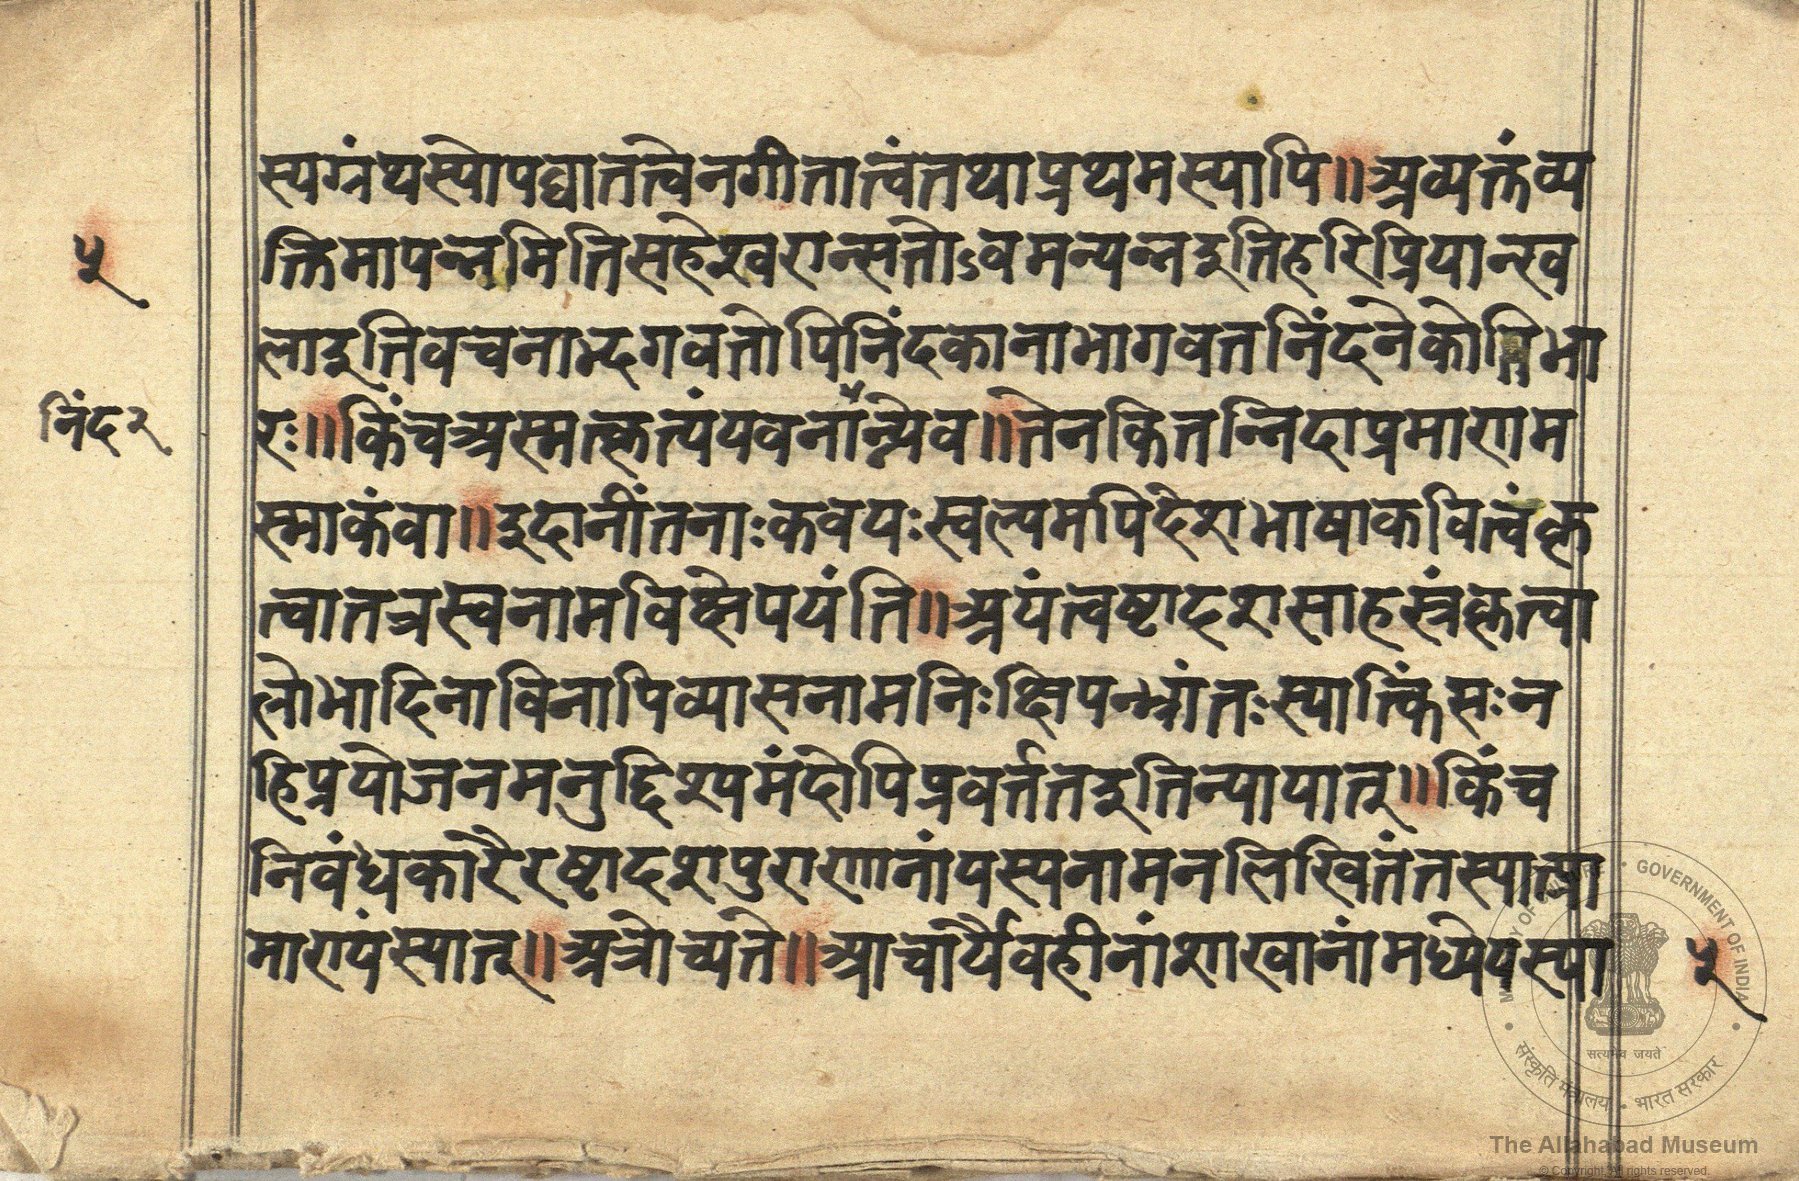 स्यग्रंथस्योपद्घातत्वेनगीतात्वंतथाप्रथमस्यापि॥अव्यक्तंव्य
५
क्तिमापन्नमितिसहेश्वरान्सतोऽवमन्यन्नइतिहरिप्रियान्खव
लाइतिवचनाद्भगवतोपिनिंदकानाभागवतनिंदनेकोतिभा
निंद२
रः॥किंचअस्मत्कृत्यंयवनान्प्येव॥तेनकितन्निदाप्रमाणम
स्माकंवा॥इदानींतनाःकवयःस्वल्पमपिदेशभाषाकवित्वंकृ
त्वातत्रस्वनामविक्षेपयंति॥अयंत्वष्टादशसाहस्त्रंकृत्वा
लोभादिनाविनापिव्यासनामनिःक्षिपन्भ्रांतःस्यात्किंसःन
हिप्रयोजनमनुद्दिश्यमंदोपिप्रवर्त्ततइतिन्यायात्॥किंच
निवंधकारैरष्टादशपुराणानांयस्यनामनलिखितंतस्यात्प्रा
माण्यंस्यात्॥अत्रोच्यते॥आचार्यैवहीनांशाखानांमध्येयस्या
५
MINISTRY OF CULTURE • GOVERNMENT OF INDIA
सत्यमेव जयते
संस्कृति मंत्रालय • भारत सरकार
The Allahabad Museum
© Copyright. All rights reserved.